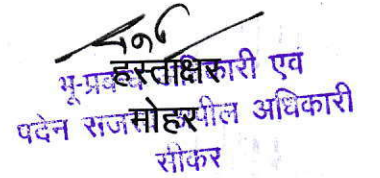 हस्ताक्षर
भू-प्रबन्ध अधिकारी एवं
मोहर
पदेन राजस्व अपील अधिकारी
सीकर